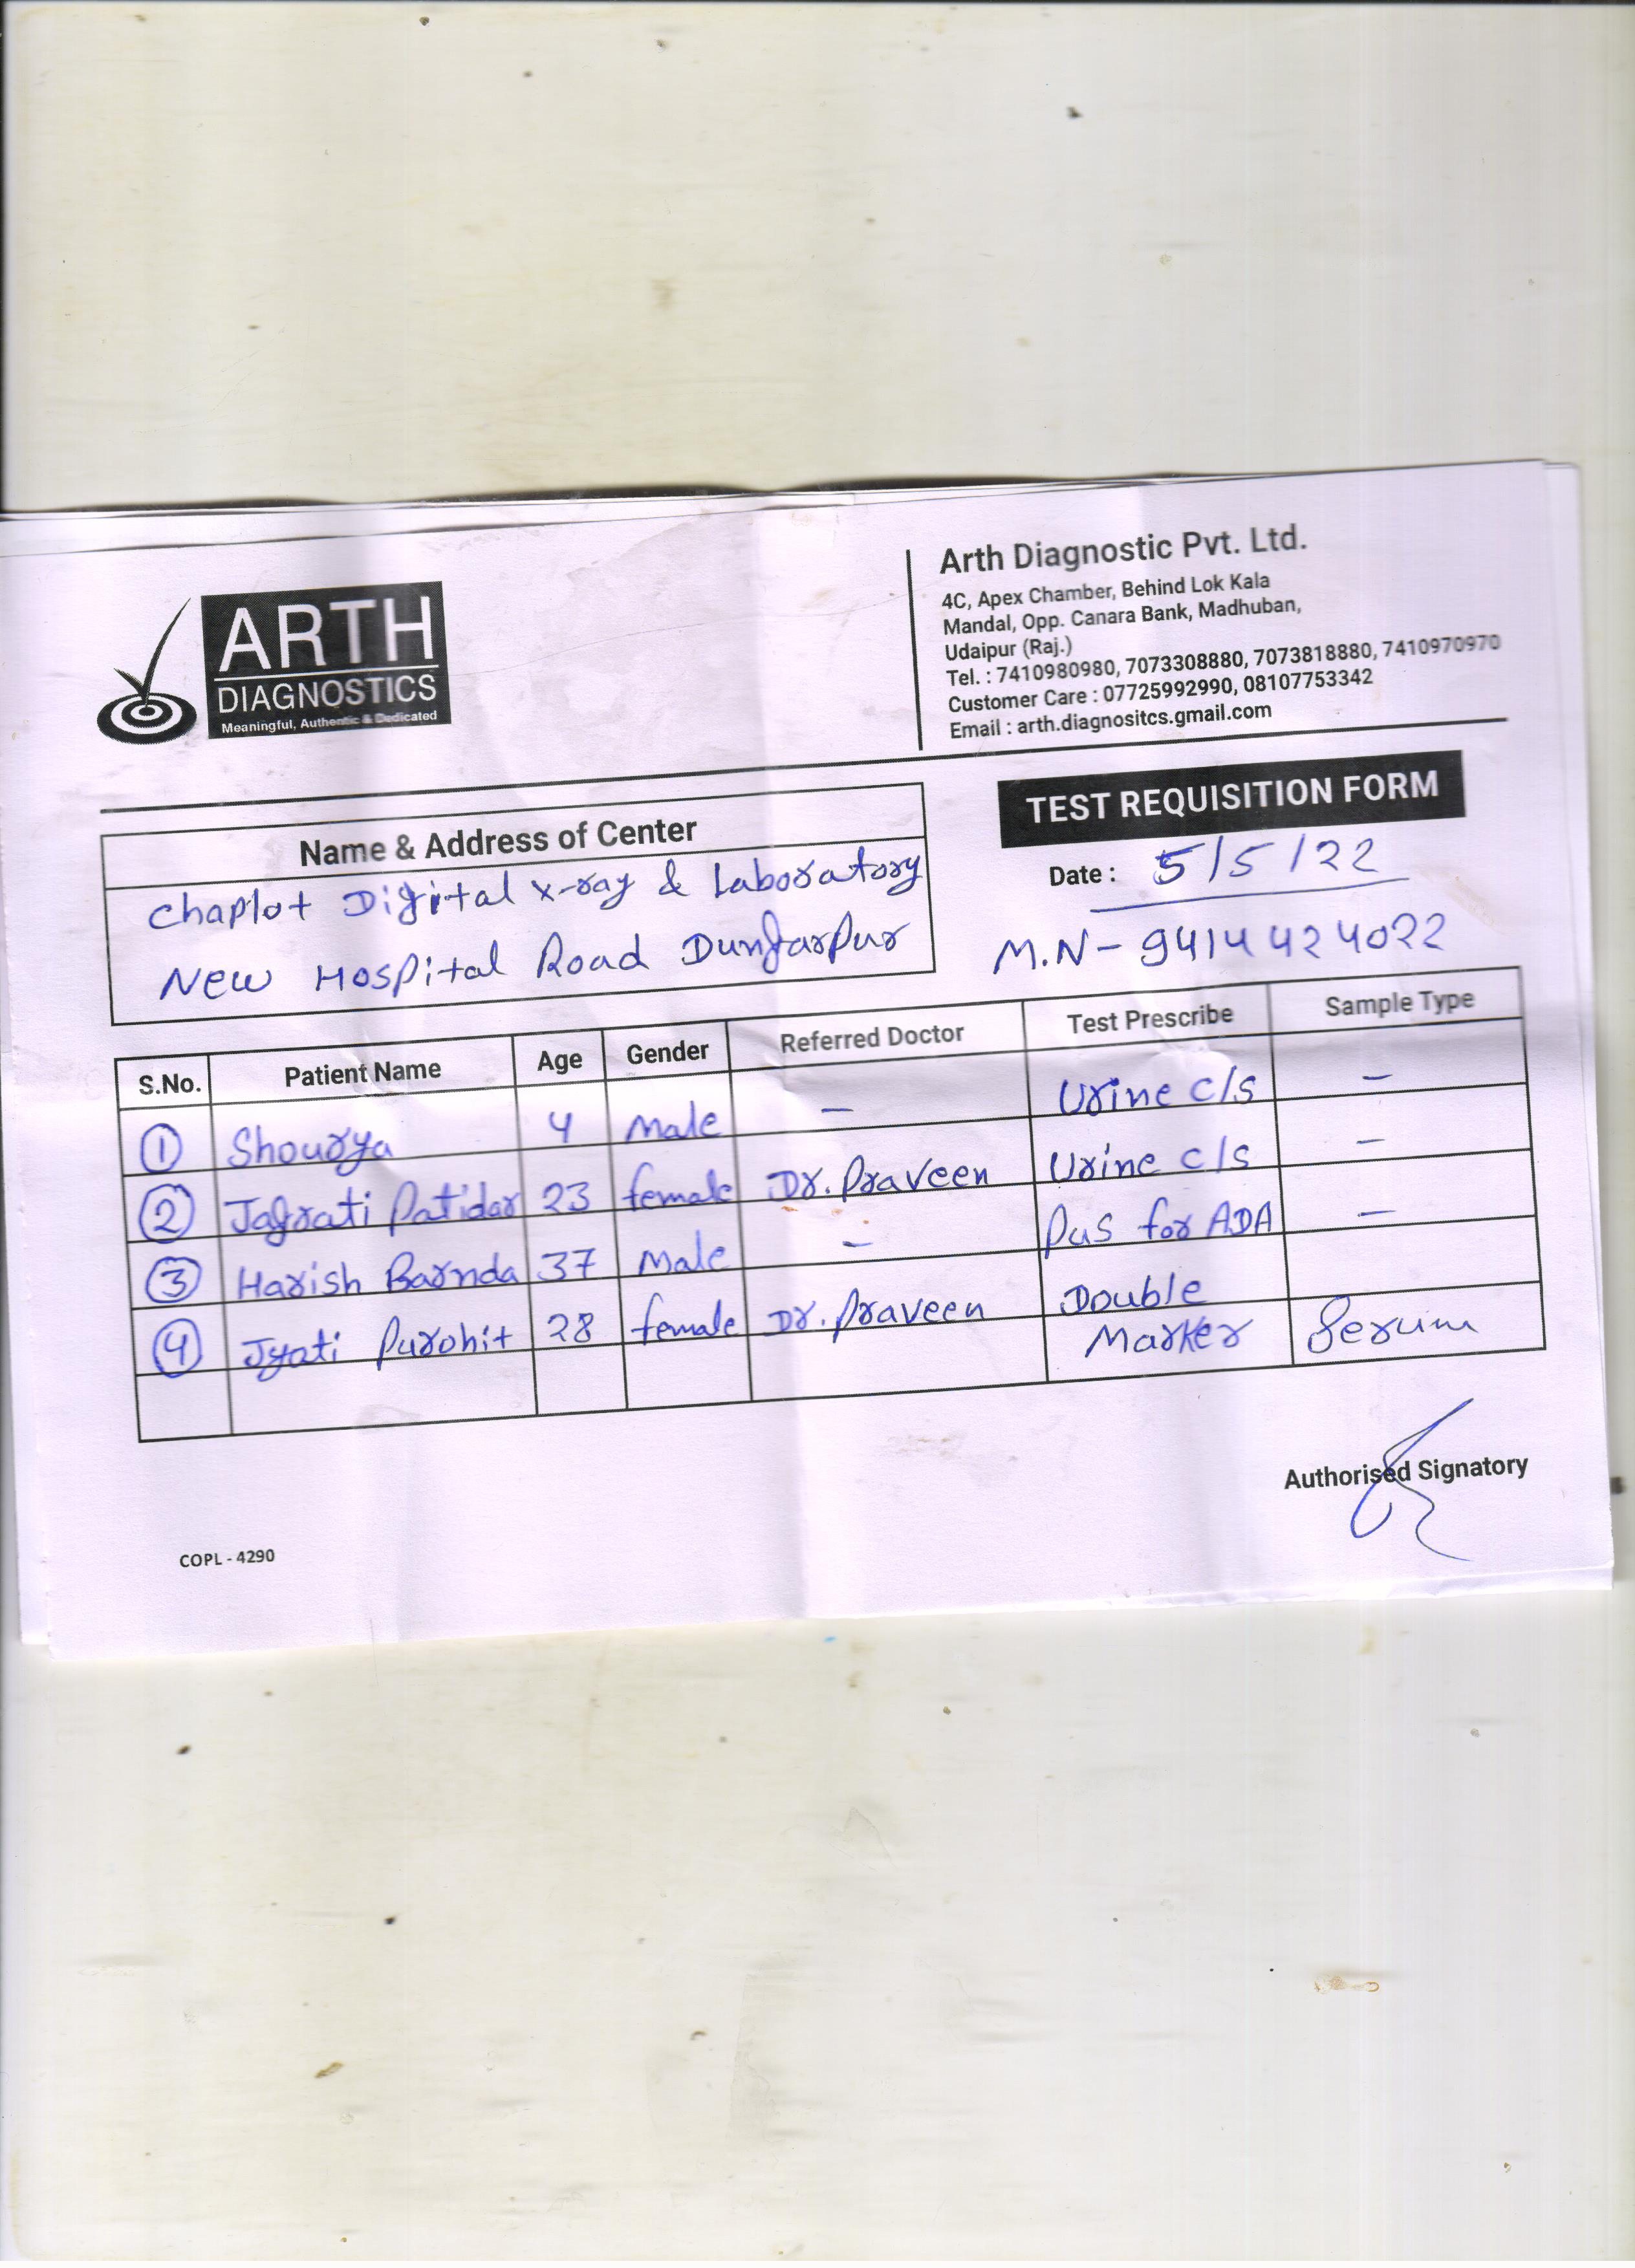 ARTH
DIAGNOSTICS
Meaningful, Authentic & Dedicated
Arth Diagnostic Pvt. Ltd.
4C, Apex Chamber, Behind Lok Kala
Mandal, Opp. Canara Bank, Madhuban,
Udaipur (Raj.)
Tel. : 7410980980, 7073308880, 7073818880, 7410970970
Customer Care : 07725992990, 08107753342
Email : arth.diagnositcs.gmail.com
TEST REQUISITION FORM
Name & Address of Center
Chaplot Digital X-ray & Laboratory
New Hospital Road Dungarpur
Date : 5/5/22
M.N - 9414424022
S.No. Patient Name Age Gender Referred Doctor Test Prescribe Sample Type
1 Shourya 4 Male - Urine c/s -
2 Jagrati Patidar 23 female Dr. Praveen Urine c/s -
3 Harish Barnda 37 Male - Pus for ADA -
4 Jyati Purohit 28 female Dr. Praveen Double
Marker Serum
Authorised Signatory
COPL - 4290